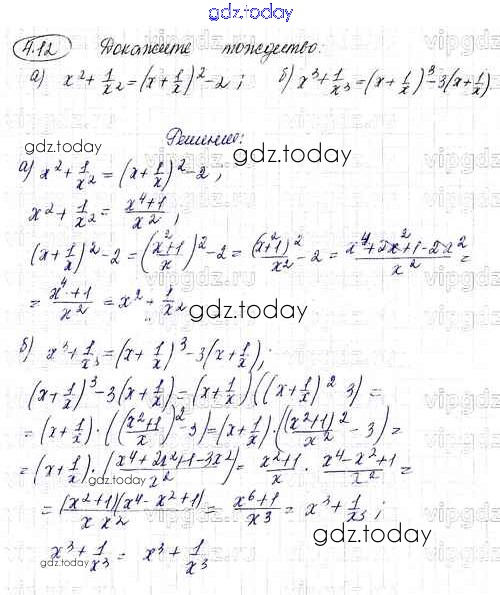 gdz.today
4.12 Докажите тождество:
а) x² + 1/x² = (x + 1/x)² - 2 ; б) x³ + 1/x³ = (x + 1/x)³ - 3(x + 1/x).
Решение:
gdz.today
а) x² + 1/x² = (x + 1/x)² - 2 ;
x² + 1/x² = x⁴+1/x² ;
(x + 1/x)² - 2 = (x²+1/x)² - 2 = (x²+1)²/x² - 2 = x⁴+2x²+1-2x²/x² =
= x⁴+1/x² = x² + 1/x²
gdz.today
б) x³ + 1/x³ = (x + 1/x)³ - 3(x + 1/x) ;
(x + 1/x)³ - 3(x + 1/x) = (x + 1/x) ((x + 1/x)² 3) =
= (x + 1/x) · ((x²+1/x)² - 3) = (x + 1/x) · ((x²+1)²/x² - 3) =
= (x + 1/x) · (x⁴+2x²+1-3x²/x²) = x²+1/x · x⁴-x²+1/x² =
gdz.today
= (x²+1)(x⁴-x²+1)/x x² = x⁶+1/x³ = x³ + 1/x³ ;
gdz.today
x³ + 1/x³ = x³ + 1/x³